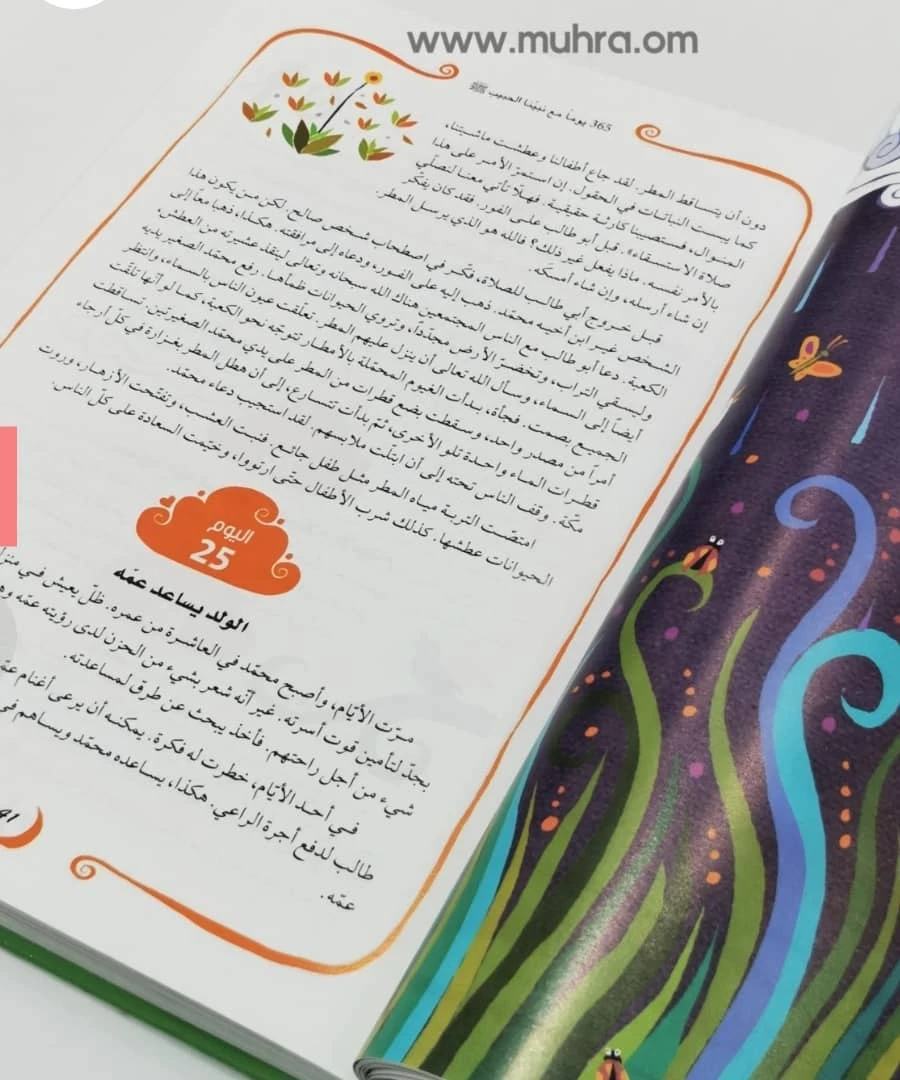 www.muhra.om
365 يوماً مع نبيّنا الحبيب ﷺ
دون أن يتساقط المطر. لقد جاع أطفالنا وعطشت ماشيتنا،
كما يبست النباتات في الحقول. إن استمرّ الأمر على هذا
المنوال، فستصيبنا كارثة حقيقية. فهلّا تأتي معنا لنصلّي
صلاة الاستسقاء». قبل أبو طالب على الفور. فقد كان يفكّر
بالأمر نفسه. ماذا يفعل غير ذلك؟ فالله هو الذي يرسل المطر
إن شاء أرسله، وإن شاء أمسكه.
قبل خروج أبي طالب للصلاة، فكّر في اصطحاب شخص صالح. لكن من يكون هذا
الشخص غير ابن أخيه محمّد. ذهب إليه على الفور، ودعاه إلى مرافقته. هكذا، ذهبا معاً إلى
الكعبة. دعا أبو طالب مع الناس المجتمعين هناك الله سبحانه وتعالى لينقذ عشيرته من العطش،
وليسقي التراب، وتخضرّ الأرض مجدّداً، وتروي الحيوانات ظمأها. رفع محمّد الصغير يديه
أيضاً إلى السماء، وسأل الله تعالى أن ينزل عليهم المطر. تعلّقت عيون الناس بالسماء، وانتظر
الجميع بصمت. فجأة، بدأت الغيوم المحمّلة بالأمطار تتوجّه نحو الكعبة، كما لو أنّها تلقّت
أمراً من مصدر واحد، وسقطت بضع قطرات من المطر على يدي محمّد الصغيرتين. تساقطت
قطيرات الماء واحدة تلو الأخرى، ثمّ بدأت تتسارع، إلى أن هطل المطر بغزارة في كلّ أرجاء
مكّة. وقف الناس تحته إلى أن ابتلّت ملابسهم. لقد استجيب دعاء محمّد.
امتصّت التربة مياه المطر مثل طفل جائع. فنبت العشب، وتفتّحت الأزهار، وروت
الحيوانات عطشها. كذلك شرب الأطفال حتّى ارتووا، وخيّمت السعادة على كلّ الناس.
اليوم
25
الولد يساعد عمّه
مرّت الأيّام، وأصبح محمّد في العاشرة من عمره. ظلّ يعيش في
بجدّ لتأمين قوت أسرته. غير أنّه شعر بشيء من الحزن لدى رؤيته عمّه
شيء من أجل راحتهم. فأخذ يبحث عن طرق لمساعدته.
في أحد الأيّام، خطرت له فكرة. يمكنه أن يرعى أغنام
طالب لدفع أجرة الراعي. هكذا، يساعده محمّد ويساهم في
عمّه.
41